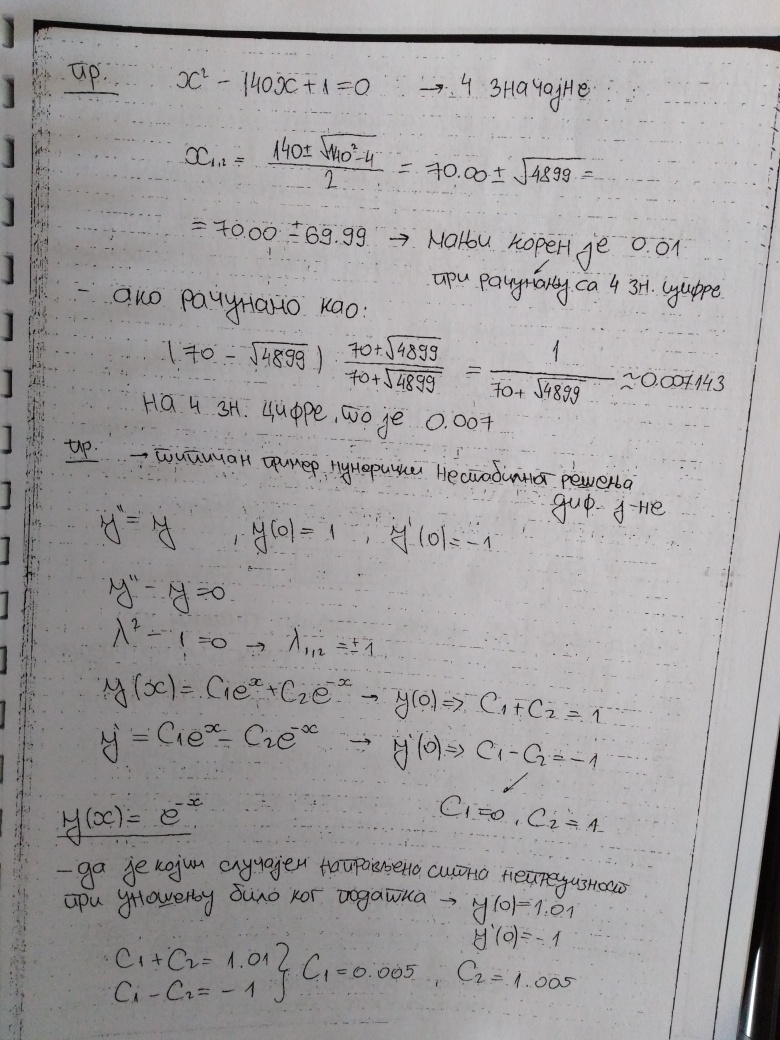 пр. x² - 140x + 1 = 0 → 4 значајне
x₁,₂ = (140 ± √(140² - 4)) / 2 = 70.00 ± √4899 =
= 70.00 ± 69.99 → мањи корен је 0.01
при рачунању са 4 зн. цифре
- ако рачунамо као:
(70 - √4899) (70 + √4899)/(70 + √4899) = 1/(70 + √4899) ≈ 0.007143
на 4 зн. цифре, то је 0.007
пр. → типичан пример нумерички нестабилног решења
диф. ј-не
y'' = y , y(0) = 1 , y'(0) = -1
y'' - y = 0
λ² - 1 = 0 → λ₁,₂ = ±1
y(x) = C₁eˣ + C₂e⁻ˣ → y(0) => C₁ + C₂ = 1
y' = C₁eˣ - C₂e⁻ˣ → y'(0) => C₁ - C₂ = -1
C₁ = 0, C₂ = 1
y(x) = e⁻ˣ
- да је којим случајем направљена ситна непрецизност
при уношењу било ког податка → y(0) = 1.01
y'(0) = -1
C₁ + C₂ = 1.01 } C₁ = 0.005, C₂ = 1.005
C₁ - C₂ = -1